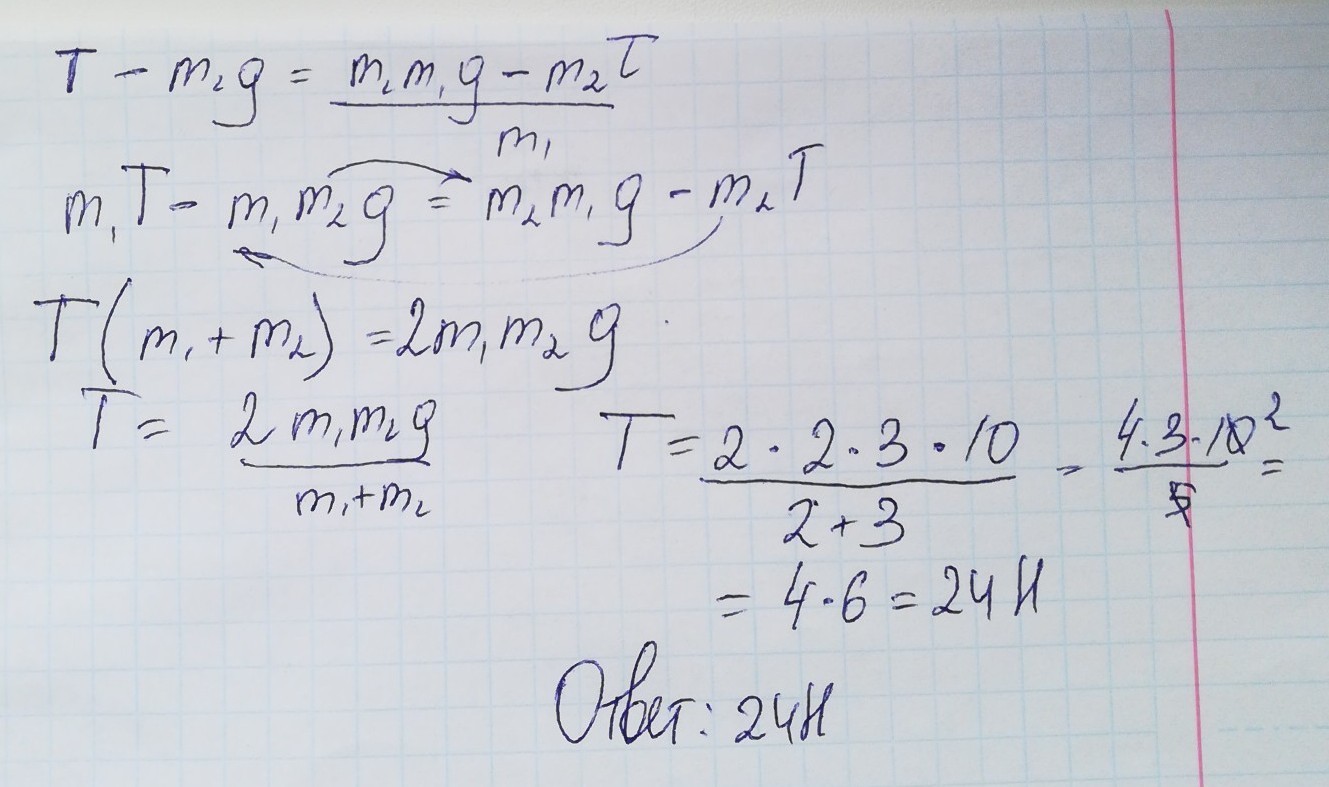 T - m₂g = (m₂m₁g - m₂T)/m₁
m₁T - m₁m₂g = m₂m₁g - m₂T
T(m₁ + m₂) = 2m₁m₂g
T = (2m₁m₂g)/(m₁+m₂)
T = (2·2·3·10)/(2+3) = (4·3·10²)/5 =
= 4·6 = 24Н
Ответ: 24Н